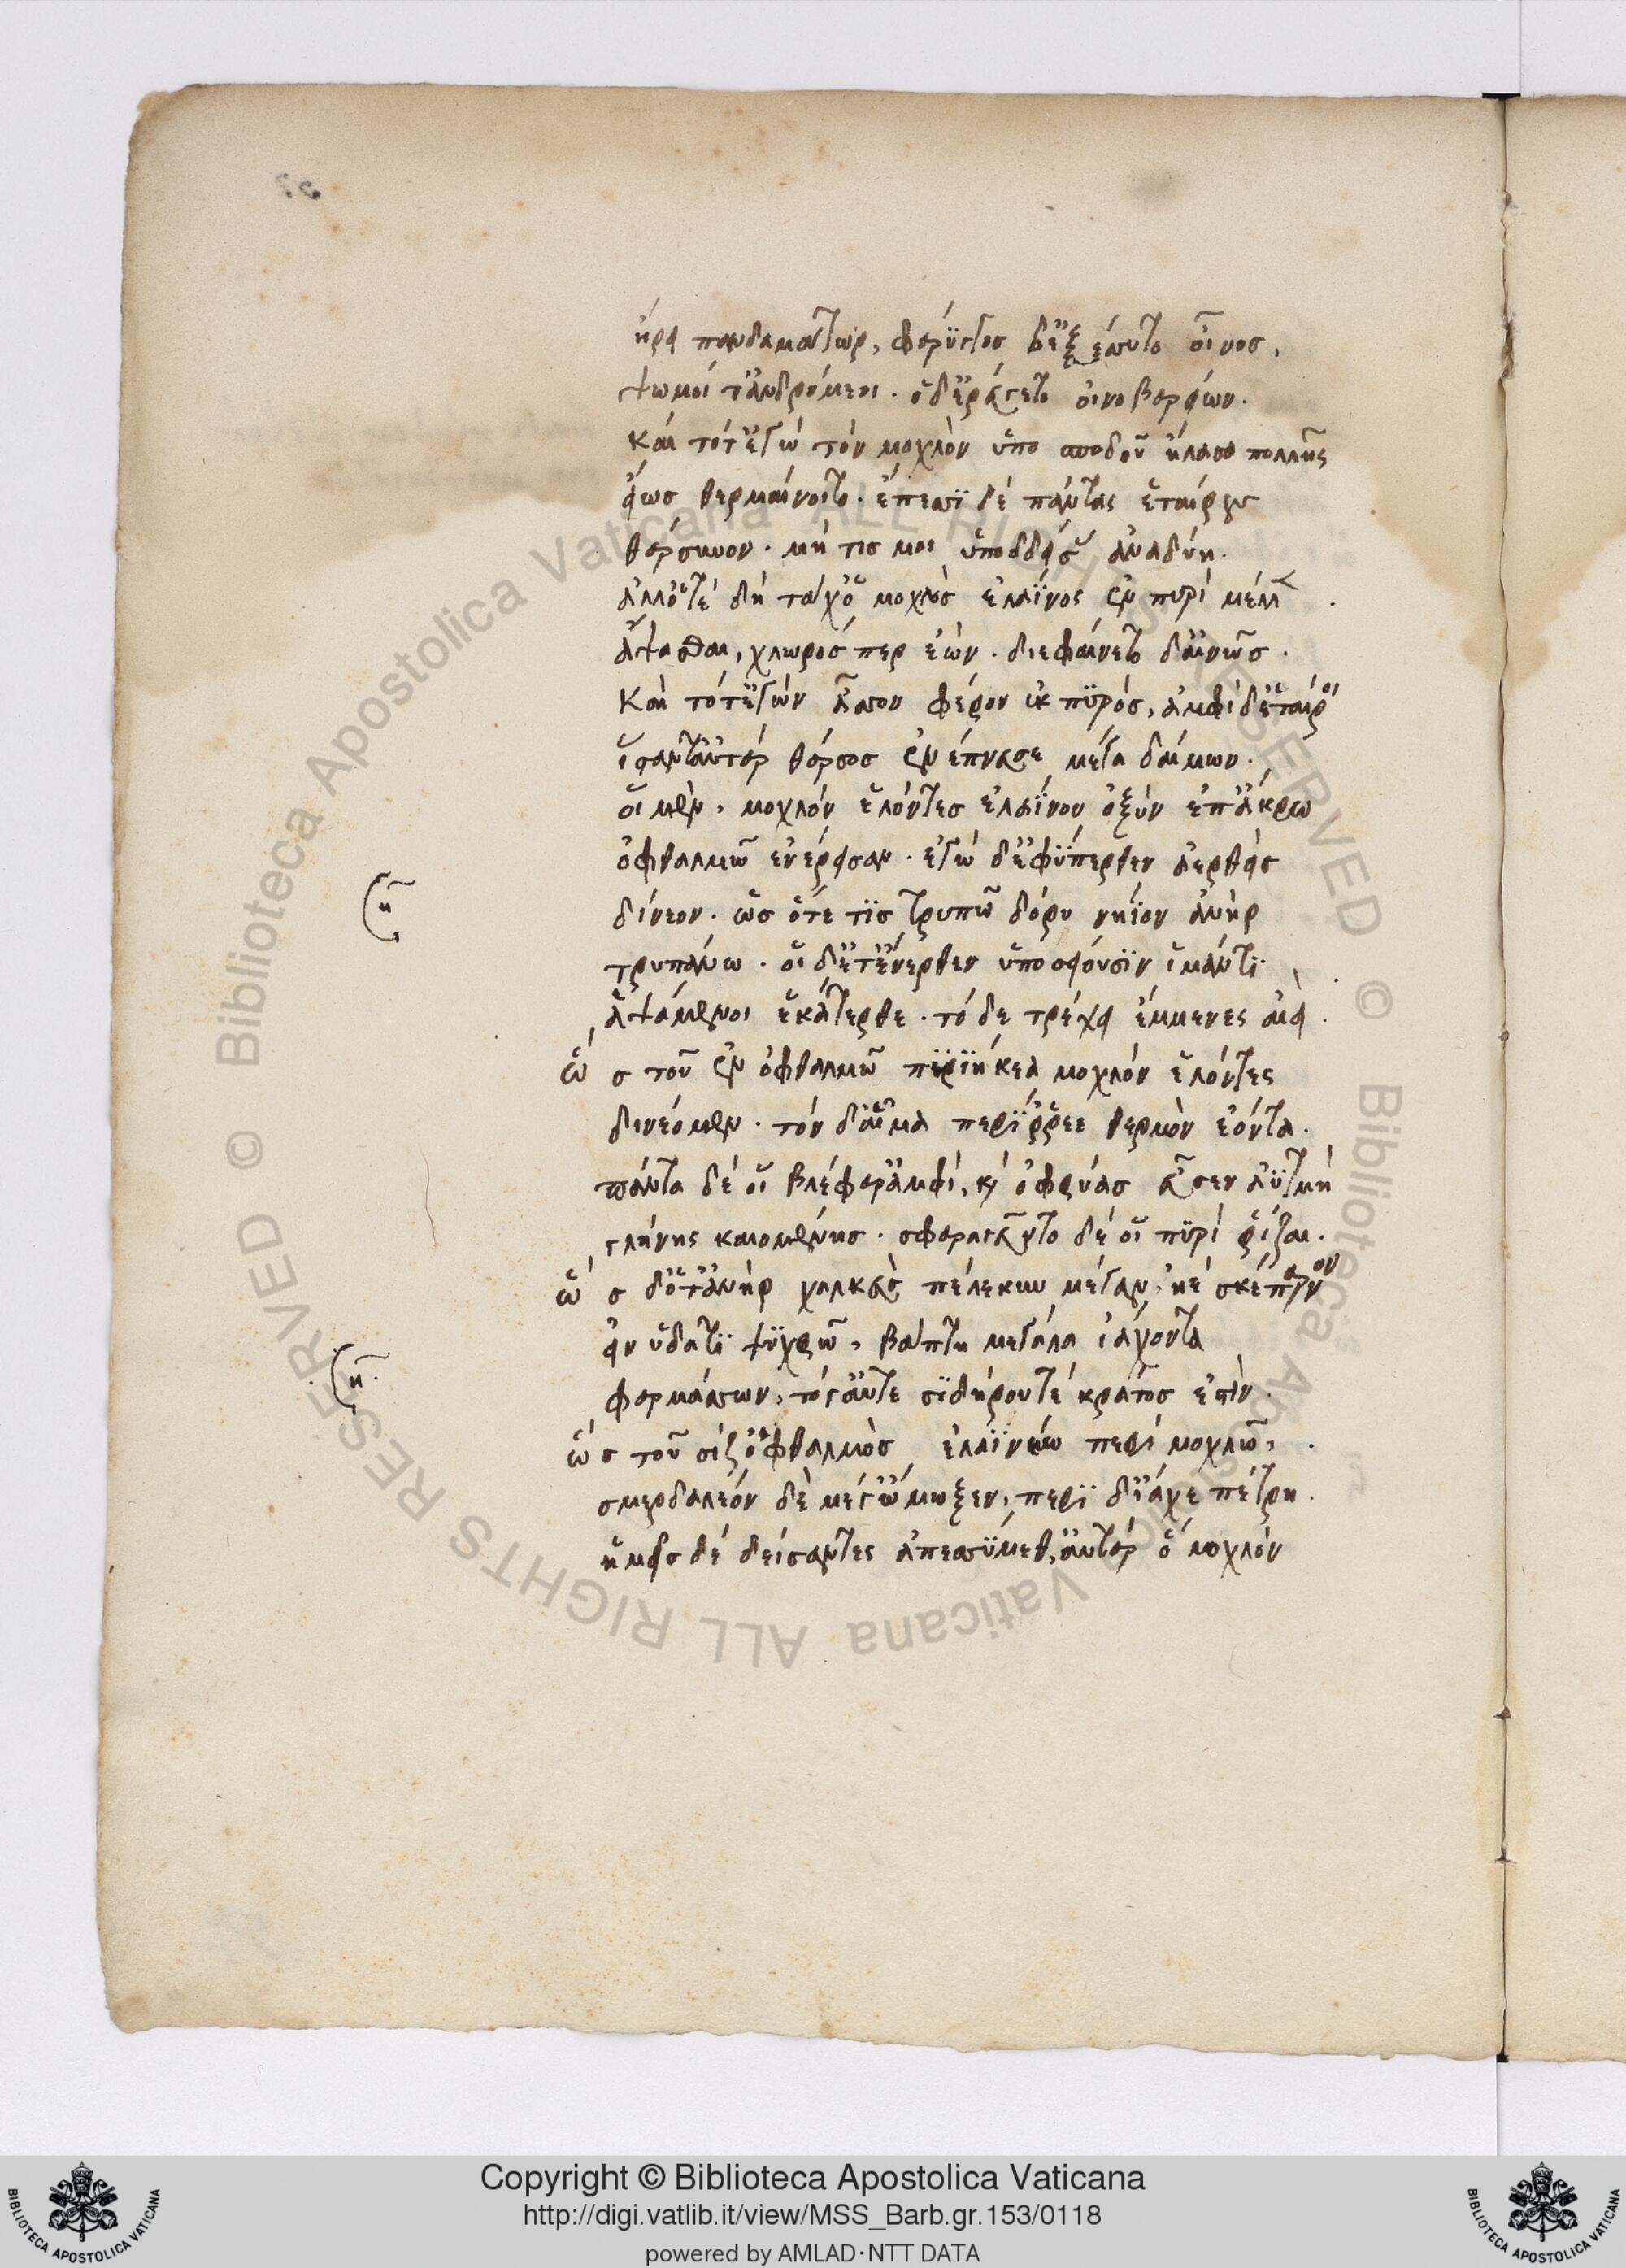 ᾕρει πανδαμάτωρ, φάρυγγος δ' ἐξέσσυτο οἶνος,
ψωμοί τ' ἀνδρόμεοι· ὁ δ' ἐρεύγετο οἰνοβαρείων.
καὶ τότ' ἐγὼ τὸν μοχλὸν ὑπὸ σποδοῦ ἤλασα πολλῆς
εἵως θερμαίνοιτο· ἔπεσι δὲ πάντας ἑταίρους
θάρσυνον· μή τις μοι ὑποδδείσας ἀναδύη.
ἀλλ' ὅτε δὴ τάχ' ὁ μοχλὸς ἐλάϊνος ἐν πυρὶ μέλλεν
ἅψασθαι, χλωρός περ ἐών· διεφαίνετο δ' αἰνῶς.
καὶ τότ' ἐγὼν ἆσσον φέρον ἐκ πυρός, ἀμφὶ δ' ἑταῖροι
ἵσταντ' αὐτὰρ θάρσος ἐνέπνευσε μέγα δαίμων.
οἱ μὲν, μοχλὸν ἑλόντες ἐλάϊνον ὀξὺν ἐπ' ἄκρω
ὀφθαλμῶ ἐνέρεισαν· ἐγὼ δ' ἐφύπερθεν ἀερθεὶς
δίνεον· ὡς ὅτε τις τρυπῶ δόρυ νήϊον ἀνὴρ
τρυπάνω· οἱ δέ τ' ἔνερθεν ὑποσσείουσιν ἱμάντι
ἁψάμενοι ἑκάτερθε· τὸ δὲ τρέχει ἐμμενὲς αἰεί.
ὣς τοῦ ἐν ὀφθαλμῶ πυριήκεα μοχλὸν ἑλόντες
δινέομεν· τὸν δ' αἷμα περίρρεε θερμὸν ἐόντα.
πάντα δέ οἱ βλέφαρ' ἀμφὶ, καὶ ὀφρύας εὗσεν ἀϋτμὴ
γλήνης καιομένης· σφαραγεῦντο δέ οἱ πυρὶ ῥίζαι.
ὡς δ' ὅτ' ἀνὴρ χαλκεὺς πέλεκυν μέγαν, ἠὲ σκέπαρνον
εἰν ὕδατι ψυχρῶ, βάπτη μεγάλα ἰάχοντα
φαρμάσσων, τὸ γὰρ αὖτε σιδήρου τε κράτος ἐστίν.
ὣς τοῦ σίζ' ὀφθαλμὸς ἐλαϊνέω περὶ μοχλῶ,
σμερδαλέον δὲ μέγ' ᾤμωξεν, περὶ δ' ἴαχε πέτρη.
ἡμεῖς δὲ δείσαντες ἀπεσσύμεθ', αὐτὰρ ὁ μοχλὸν
Copyright © Biblioteca Apostolica Vaticana
http://digi.vatlib.it/view/MSS_Barb.gr.153/0118
powered by AMLAD·NTT DATA